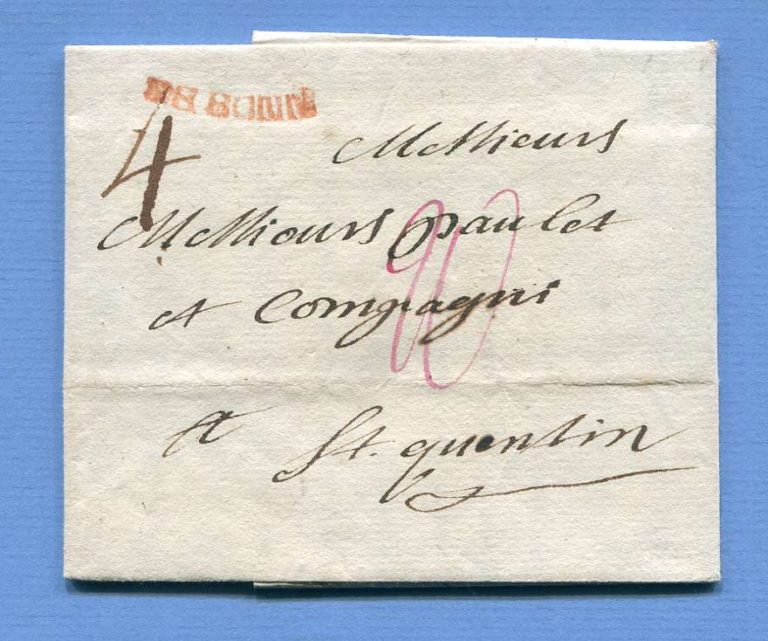 4
Messieurs
Messieurs paulet
et Compagni
a St. quentin